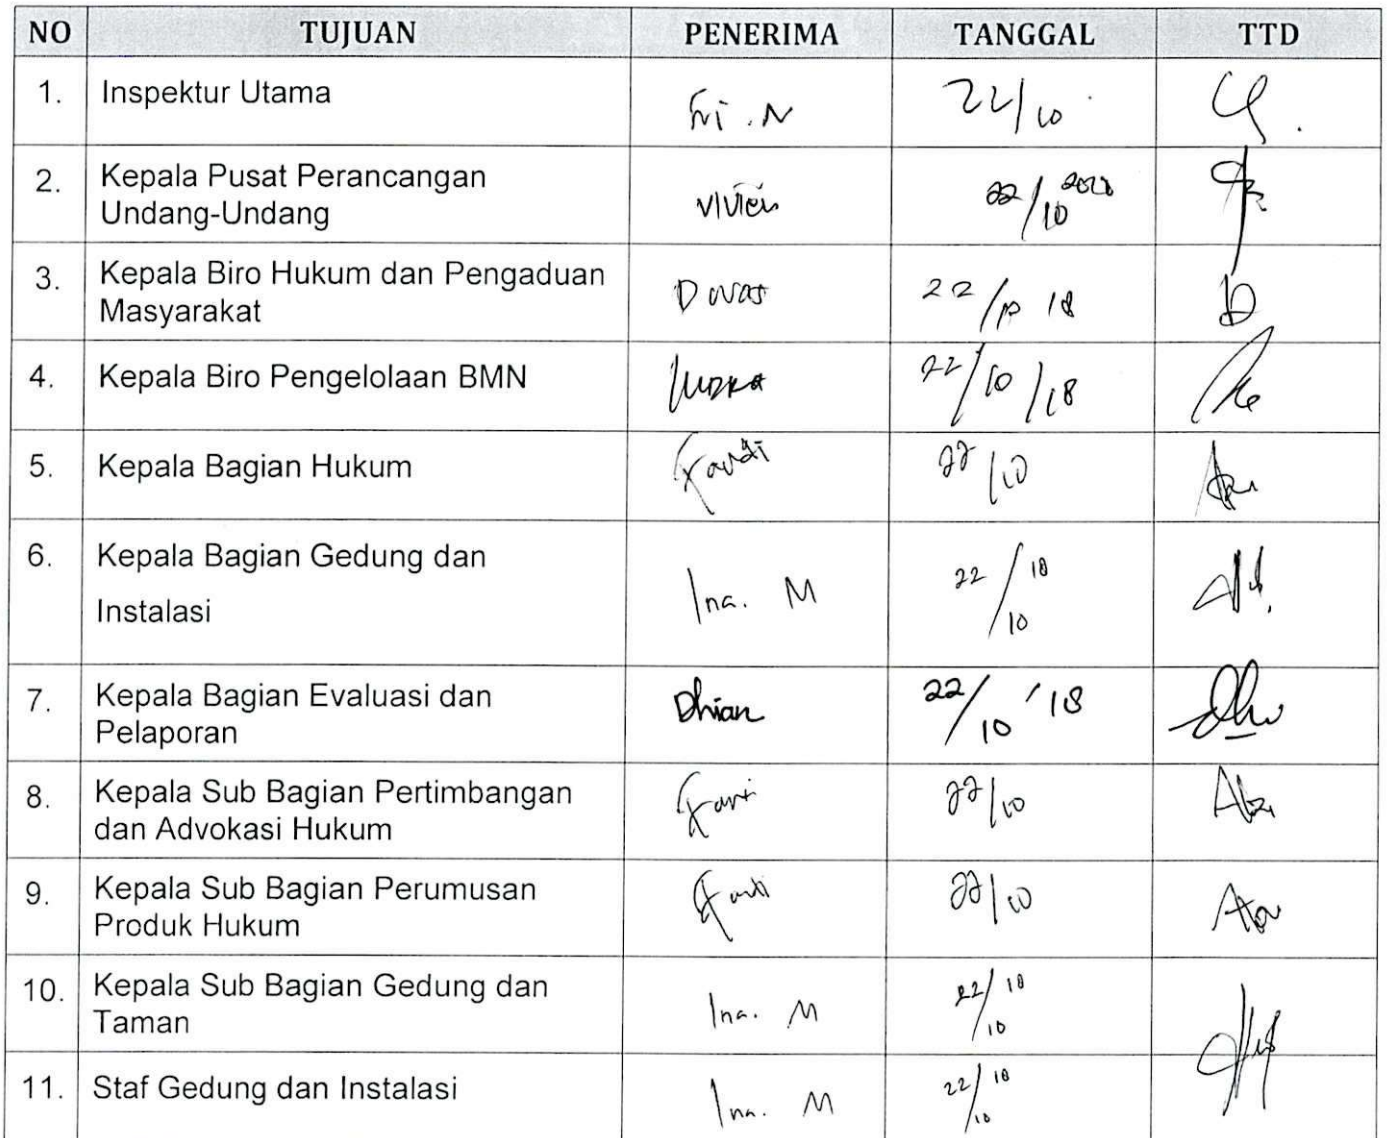 NO TUJUAN PENERIMA TANGGAL TTD
1. Inspektur Utama 22/10
2. Kepala Pusat Perancangan
Undang-Undang Vivien 22/10
3. Kepala Biro Hukum dan Pengaduan
Masyarakat 22/10 18
4. Kepala Biro Pengelolaan BMN 22/10/18
5. Kepala Bagian Hukum 22/10
6. Kepala Bagian Gedung dan
Instalasi Ina. M 22/10 18
7. Kepala Bagian Evaluasi dan
Pelaporan Dhian 22/10 '18
8. Kepala Sub Bagian Pertimbangan
dan Advokasi Hukum 22/10
9. Kepala Sub Bagian Perumusan
Produk Hukum 22/10
10. Kepala Sub Bagian Gedung dan
Taman Ina. M 22/10 18
11. Staf Gedung dan Instalasi Ina. M 22/10 18